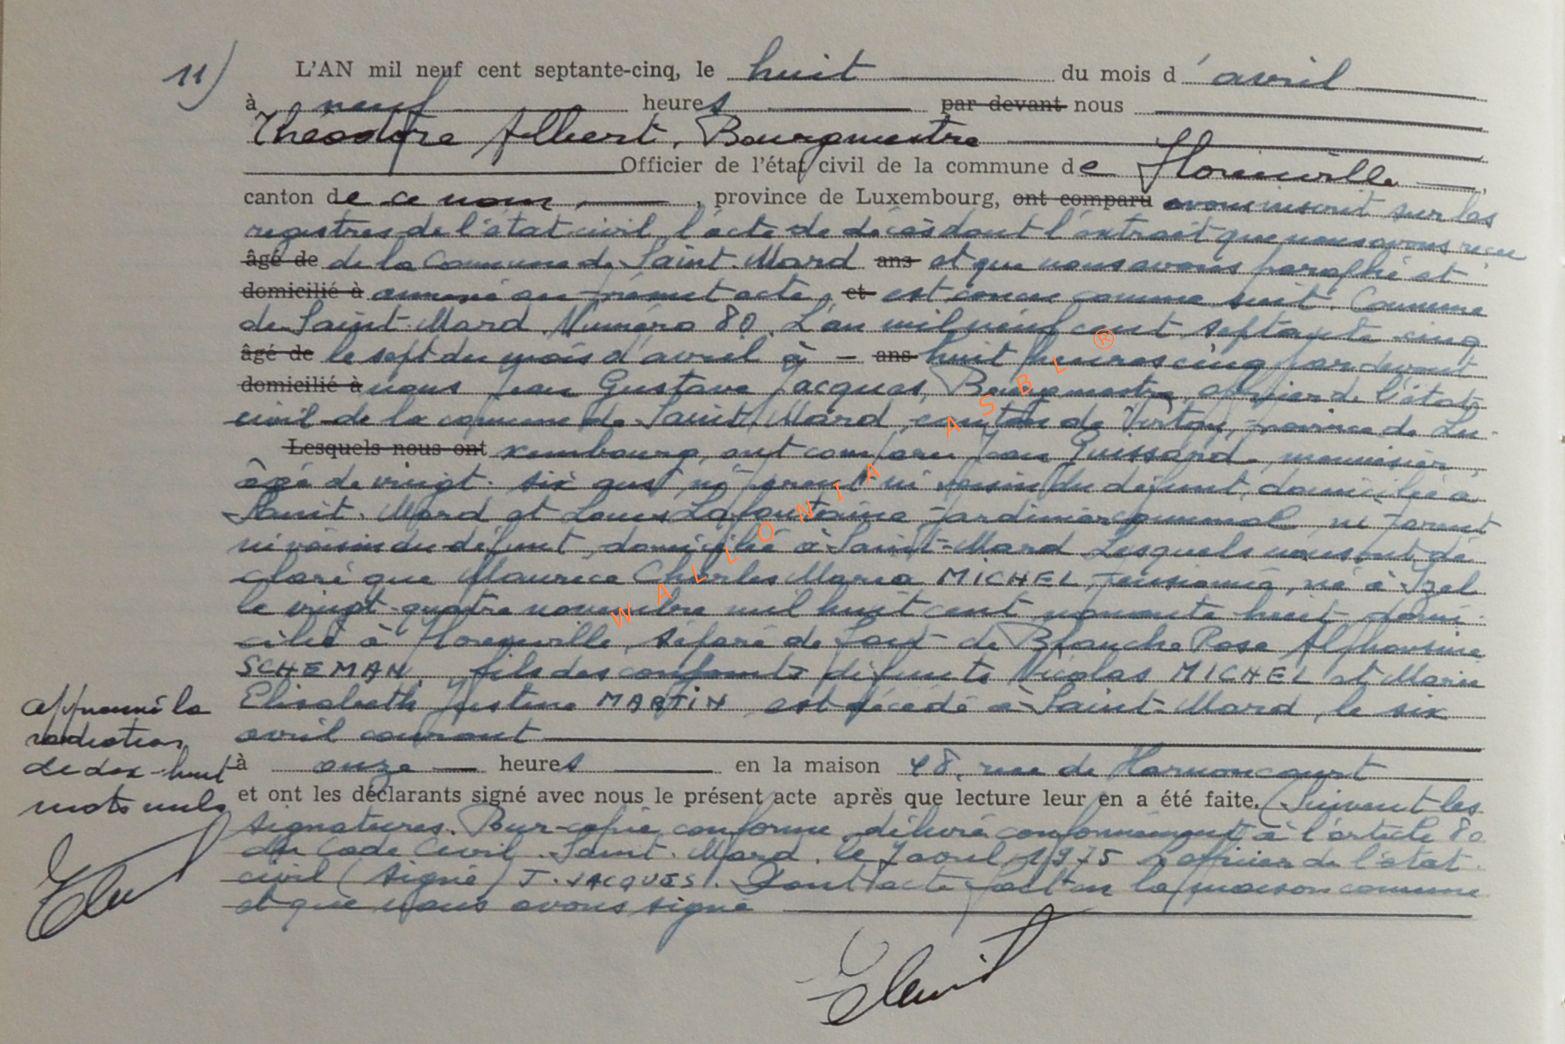 11) L'AN mil neuf cent septante-cinq, le huit du mois d'avril
à neuf heures par devant nous
Théodore Albert, Bourgmestre
Officier de l'état civil de la commune de Florenville,
canton de ce nom, province de Luxembourg, ont comparu avons inscrit sur les
registres de l'état civil, l'acte de décès dont l'extrait que nous avons reçu
âgé de de la Commune de Saint-Mard ans et que nous avons paraphé et
domicilié à annexé au présent acte, et est conçu comme suit. Commune
de Saint-Mard. Numéro 80. L'an mil neuf cent septante cinq
âgé de le sept du mois d'avril à - ans huit heures cinq par devant
domicilié à nous Jean Gustave Jacques, Bourgmestre, officier de l'état
civil de la commune de Saint-Mard, canton de Virton, province de Lu-
Lesquels nous ont xembourg, ont comparu Jean Guissard, menuisier,
âgé de vingt-six ans, ni parent ni voisin du défunt, domicilié à
Saint-Mard et Louis Lafontaine jardinier communal ni parent
ni voisin du défunt, domicilié à Saint-Mard Lesquels nous ont dé-
claré que Maurice Charles Marie MICHEL, pensionné, né à Izel
le vingt-quatre novembre mil huit cent nonante huit domi-
cilié à Florenville, séparé de fait de Blanche Rose Alphonsine
SCHEMAN, fils des conjoints défunts Nicolas MICHEL et Marie
Elisabeth Justine MARTIN est décédé à Saint-Mard, le six
avril courant
à onze heures en la maison 48, rue de Harnoncourt
et ont les déclarants signé avec nous le présent acte après que lecture leur en a été faite. (Suivent les
signatures. Pour copie conforme, délivré conformément à l'article 80
du Code Civil. Saint-Mard, le 7 avril 1975 L'officier de l'état
civil (signé) J. JACQUES. Dont acte fait en la maison commune
et que nous avons signé
approuvé la
radiation
de dix-huit
mots nuls
WALLONIA ASBL ®